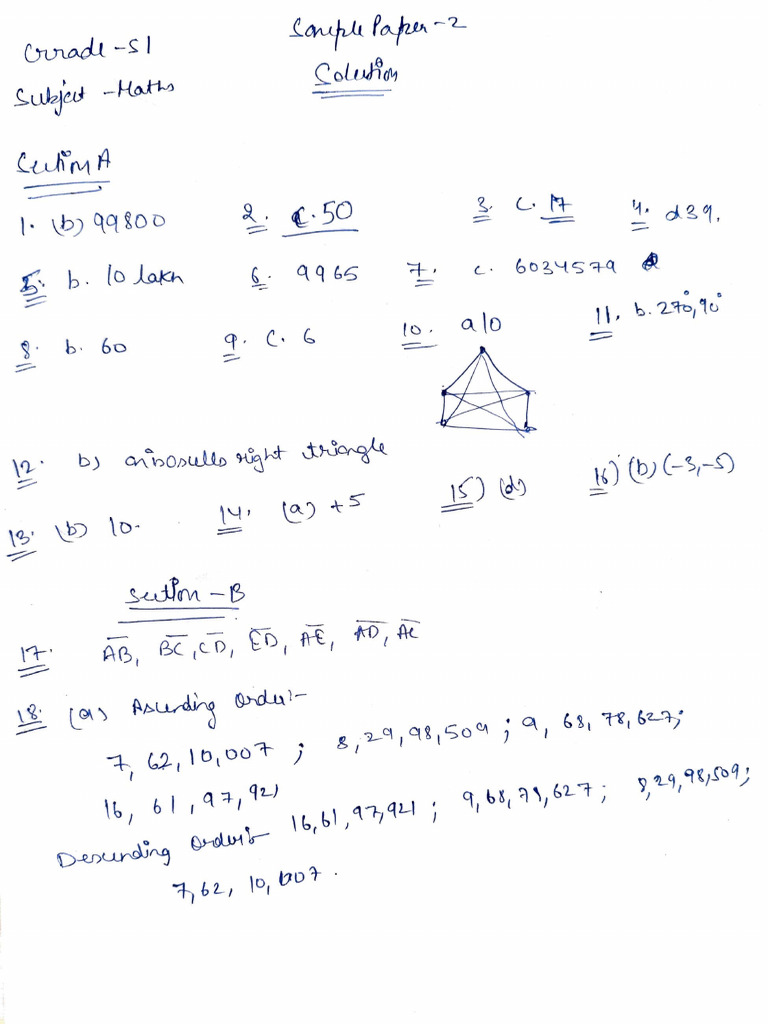 Sample Paper-2
Grade-S1
Solution
Subject -Maths
Section A
1. (b) 99800 2. c. 50 3. C. 17 4. d 39.
5. b. 10 lakh 6. 9965 7. c. 6034579
8. b. 60 9. C. 6 10. a 10 11. b. 270°, 90°
12. b) an isosulles right triangle
13. (b) 10. 14. (a) +5 15) (d) 16) (b) (-3,-5)
Section -B
17. AB, BC, CD, ED, AE, AD, AC
18. (a) Ascending Order:-
7, 62, 10, 007 ; 8, 29, 98, 509 ; 9, 68, 78, 627;
16, 61, 97, 921
Descending Order:- 16, 61, 97, 921 ; 9, 68, 78, 627 ; 8, 29, 98, 509;
7, 62, 10, 007.